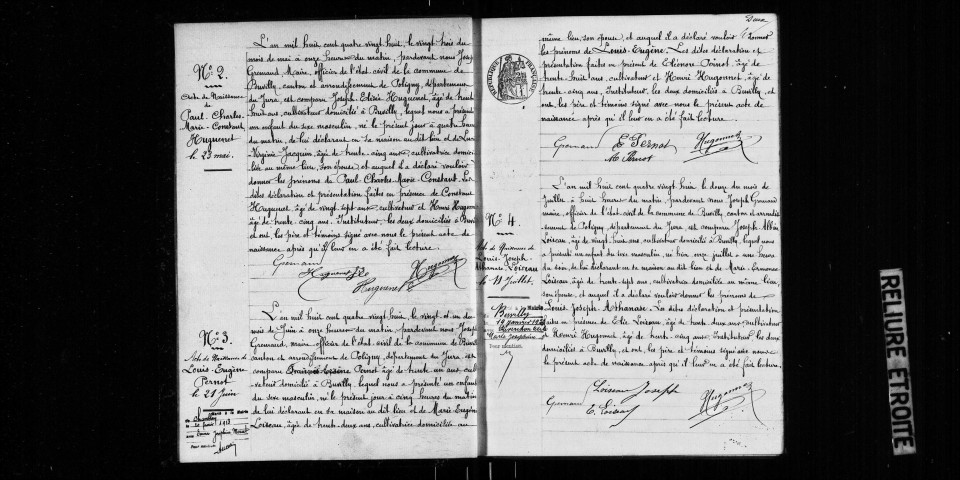 N° 2.
Acte de Naissance
de
Paul-Charles-
Marie-Constant
Huguenet
le 23 mai.
L'an mil huit cent quatre vingt huit, le vingt trois du
mois de mai à onze heures du matin, pardevant nous Joseph
Grenaud, Maire, officier de l'état civil de la commune de
Buvilly, canton et arrondissement de Poligny, département
du Jura, est comparu Joseph Huguenet, âgé de trente
huit ans, cultivateur domicilié à Buvilly, lequel nous a présenté
un enfant du sexe masculin, né le présent jour à quatre heures
du matin, de lui déclarant en sa maison audit lieu et de
Virginie Jacquin, âgée de trente-cinq ans, cultivatrice domici-
liée au même lieu, son épouse, et auquel il a déclaré vouloir
donner les prénoms de Paul-Charles-Marie-Constant. Les
dites déclaration et présentation faites en présence de Constant
Huguenet, âgé de vingt sept ans, cultivateur et Henri Hugonnet
âgé de trente-cinq ans, Instituteur, les deux domiciliés à Buvilly
et ont, les père et témoins signé avec nous le présent acte de
naissance après qu'il leur en a été fait lecture.
Huguenet
Hugonnet
N° 3.
Acte de Naissance de
Louis Eugène
Pernot
le 21 juin
L'an mil huit cent quatre vingt huit, le vingt et un du
mois de Juin à onze heures du matin, pardevant nous Joseph
Grenaud, maire, officier de l'état civil de la commune de Buvilly
canton et arrondissement de Poligny, département du Jura, est
comparu Pernot âgé de trente un ans, cul-
tivateur domicilié à Buvilly, lequel nous a présenté un enfant
du sexe masculin, né le présent jour à cinq heures du matin
de lui déclarant en sa maison au dit lieu et de Marie
Loiseau, âgée de trente-deux ans, cultivatrice domiciliée au
Deux
même lieu, son épouse, et auquel il a déclaré vouloir donner
les prénoms de Louis-Eugène. Les dites déclaration et
présentation faites en présence de Pernot, âgé de
trente huit ans, cultivateur et Henri Hugonnet, âgé de
trente-cinq ans, Instituteur, les deux domiciliés à Buvilly, et
ont, les père et témoins signé avec nous le présent acte de
naissance après qu'il leur en a été fait lecture.
E Pernot
Hugonnet
Pernot
N° 4.
Acte de Naissance de
Louis-Joseph-
Athanase Loiseau
le 11 Juillet.
L'an mil huit cent quatre vingt huit le douze du mois de
Juillet à huit heures du matin, pardevant nous Joseph Grenaud
maire, officier de l'état civil de la commune de Buvilly, canton et arrondis-
sement de Poligny, département du Jura, est comparu Joseph
Loiseau, âgé de vingt huit ans, cultivateur domicilié à Buvilly, lequel nous
a présenté un enfant du sexe masculin, né hier onze juillet à une heure
du soir, de lui déclarant en sa maison au dit lieu et de Marie
Loiseau, âgée de trente-sept ans, cultivatrice domiciliée au même lieu,
son épouse, et auquel il a déclaré vouloir donner les prénoms de
Louis Joseph Athanase. Les dites déclaration et présentation
faites en présence de Loiseau, âgé de trente deux ans, cultivateur
et Henri Hugonnet, âgé de trente-cinq ans, Instituteur, les deux
domiciliés à Buvilly, et ont, les père et témoins signé avec nous
le présent acte de naissance après qu'il leur en a été fait lecture.
Loiseau Joseph
Hugonnet
RELIURE ETROITE